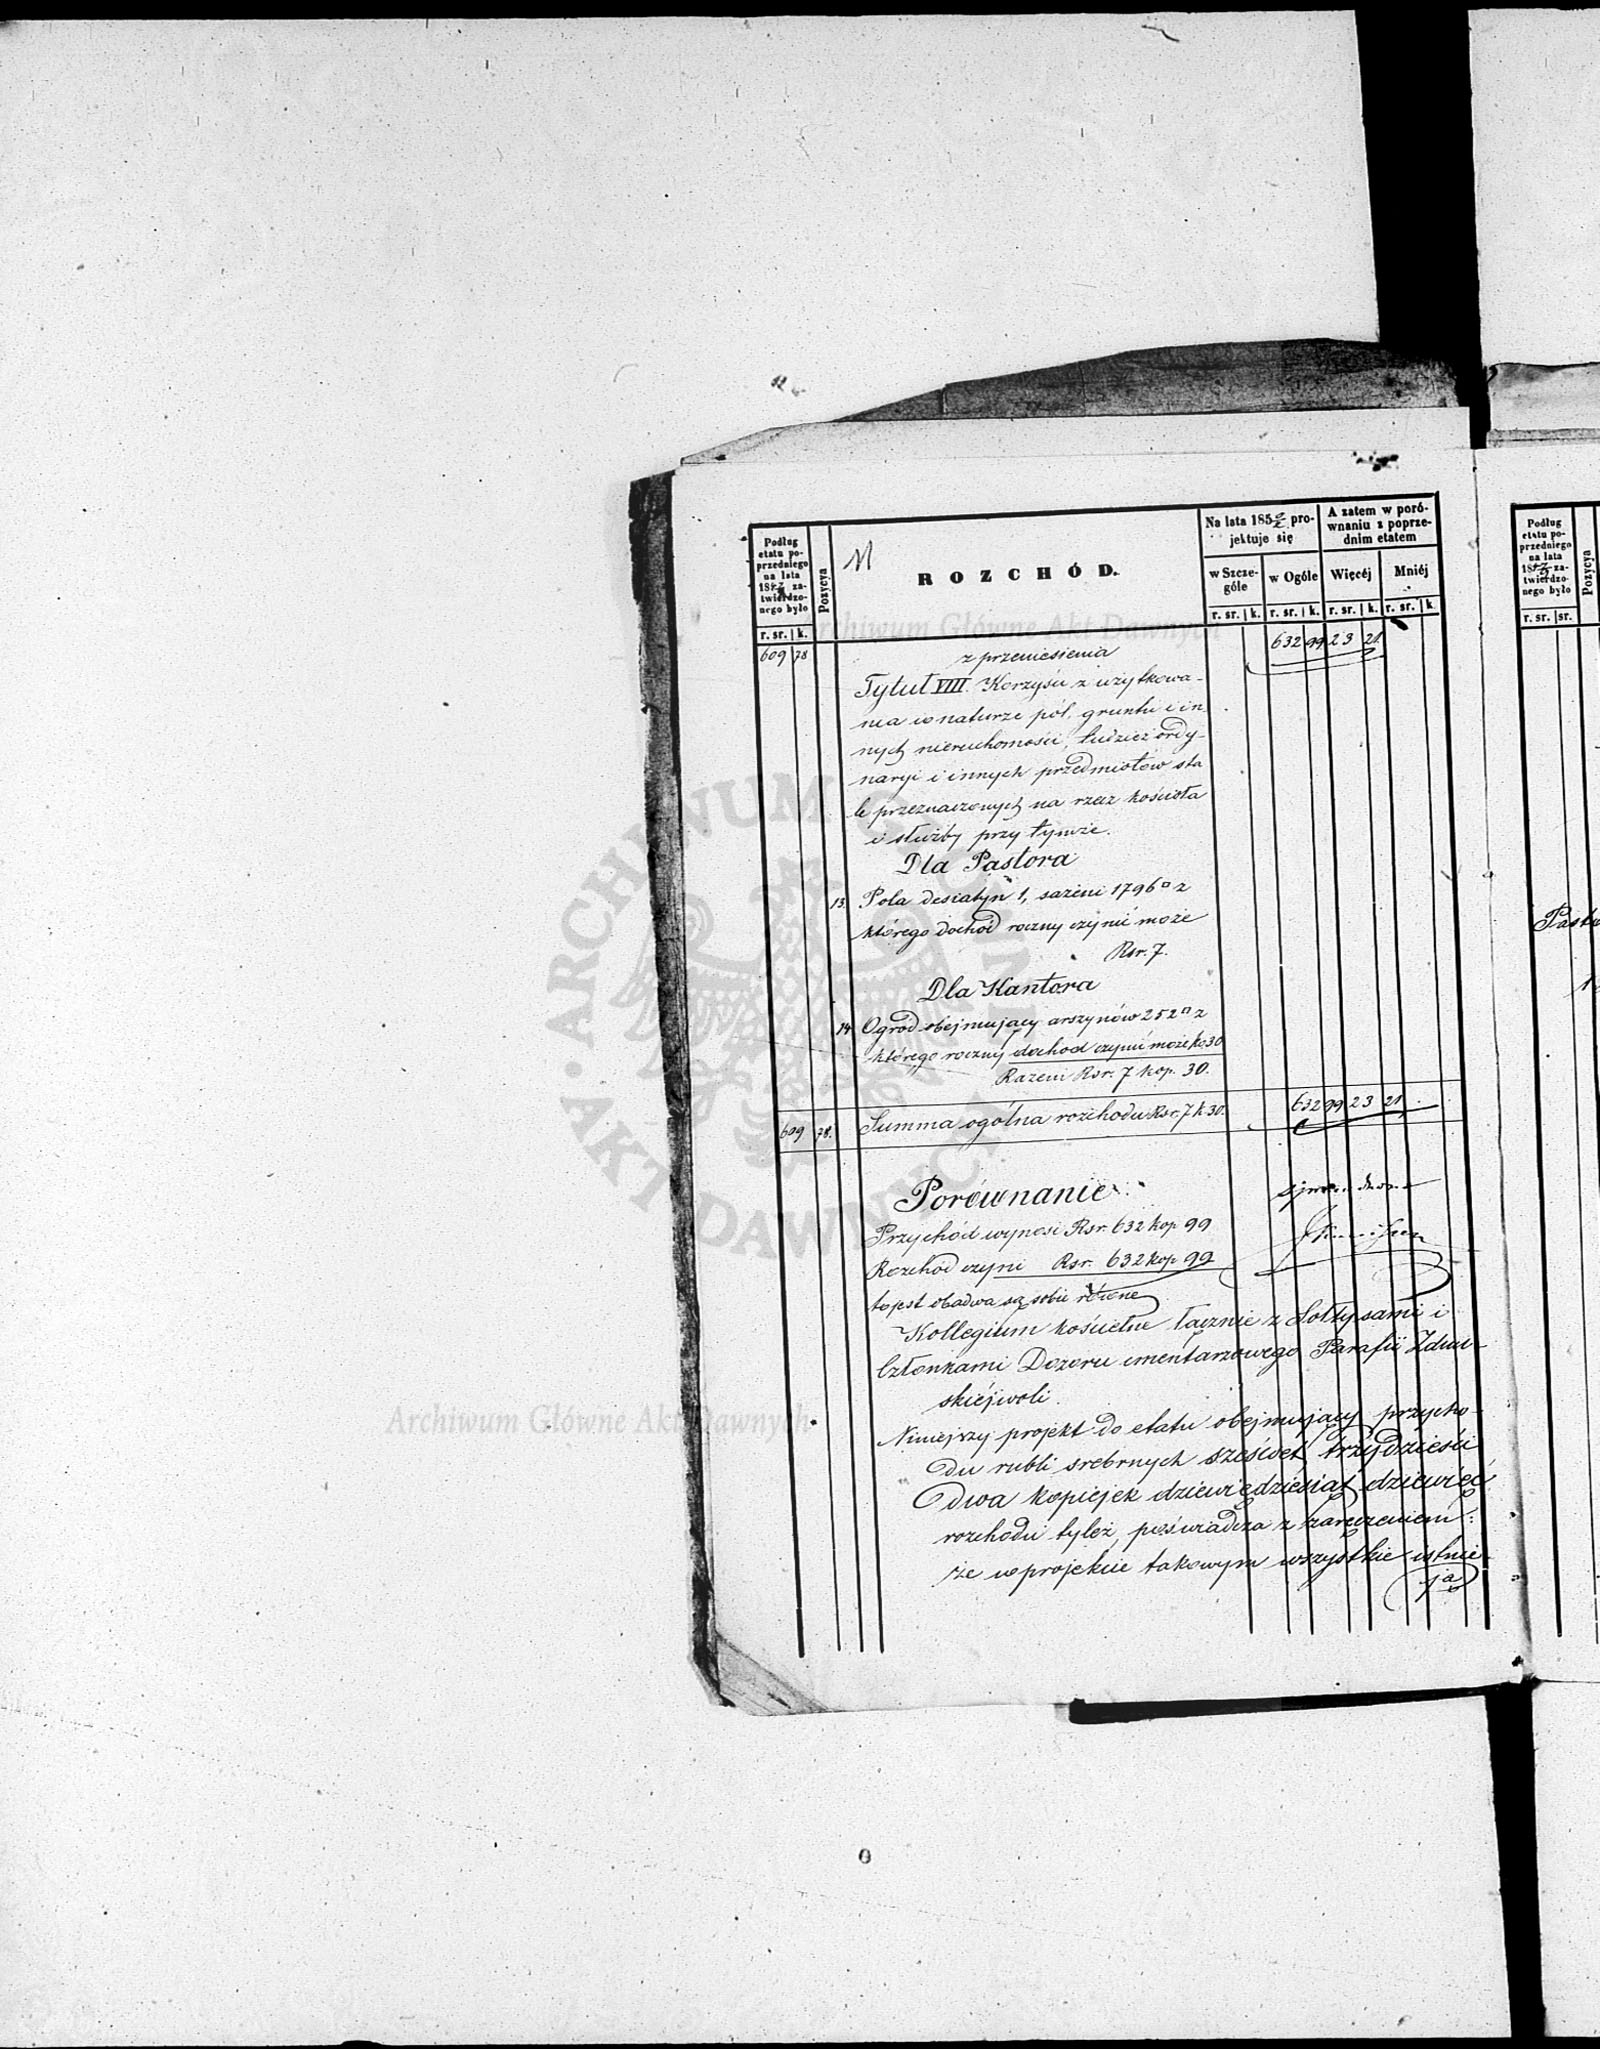 Podług etatu poprzedniego na lata zatwierdzonego było
r. sr. | k.
Pozycya
ROZCHÓD.
Na lata projektuje się
w Szczególe
r. sr. | k.
w Ogóle
r. sr. | k.
A zatem w porównaniu z poprzednim etatem
Więcéj
r. sr. | k.
Mniéj
r. sr. | k.
609 78 z przeniesienia 632 99 23 21
Tytuł VIII. Korzyści z użytkowa-
nia w naturze pól, gruntu i in
nych nieruchomości, tudzież ordy-
naryi i innych przedmiotów sta
le przeznaczonych na rzecz kościoła
i służby przy tymże.
Dla Pastora
13. Pola desiatyn 1, sażeni 1796 □ z
którego dochód roczny czynić może
Rsr. 7.
Dla Kantora
14 Ogród obejmujący arszynów 252 □ z
którego roczny dochod czynić może ko 30
Razem Rsr. 7 kop. 30.
609 78. Summa ogólna rozchodu Rsr. 7 k. 30. 632 99 23 21
Porównanie
Przychód wynosi Rsr. 632 kop 99
Rozchód czyni Rsr. 632 kop 99
to jest obadwa są sobie równe
Kollegium kościelne łącznie z Sołtysami i
Członkami Dozoru cmentarzowego Parafii Zduń-
skiéjwoli.
Niniejszy projekt do etatu obejmujący przycho-
du rubli srebrnych sześćset trzydzieści
dwa kopiejek dziewięćdziesiąt dziewięć
rozchodu tyleż, poświadcza z zaręczeniem:
że w projekcie takowym wszystkie istnie-
ją
Podług etatu poprzedniego na lata zatwierdzonego było
r. sr. | sr.
Pozycya
Archiwum Główne Akt Dawnych
ARCHIWUM GŁÓWNE AKT DAWNYCH
Archiwum Główne Akt Dawnych